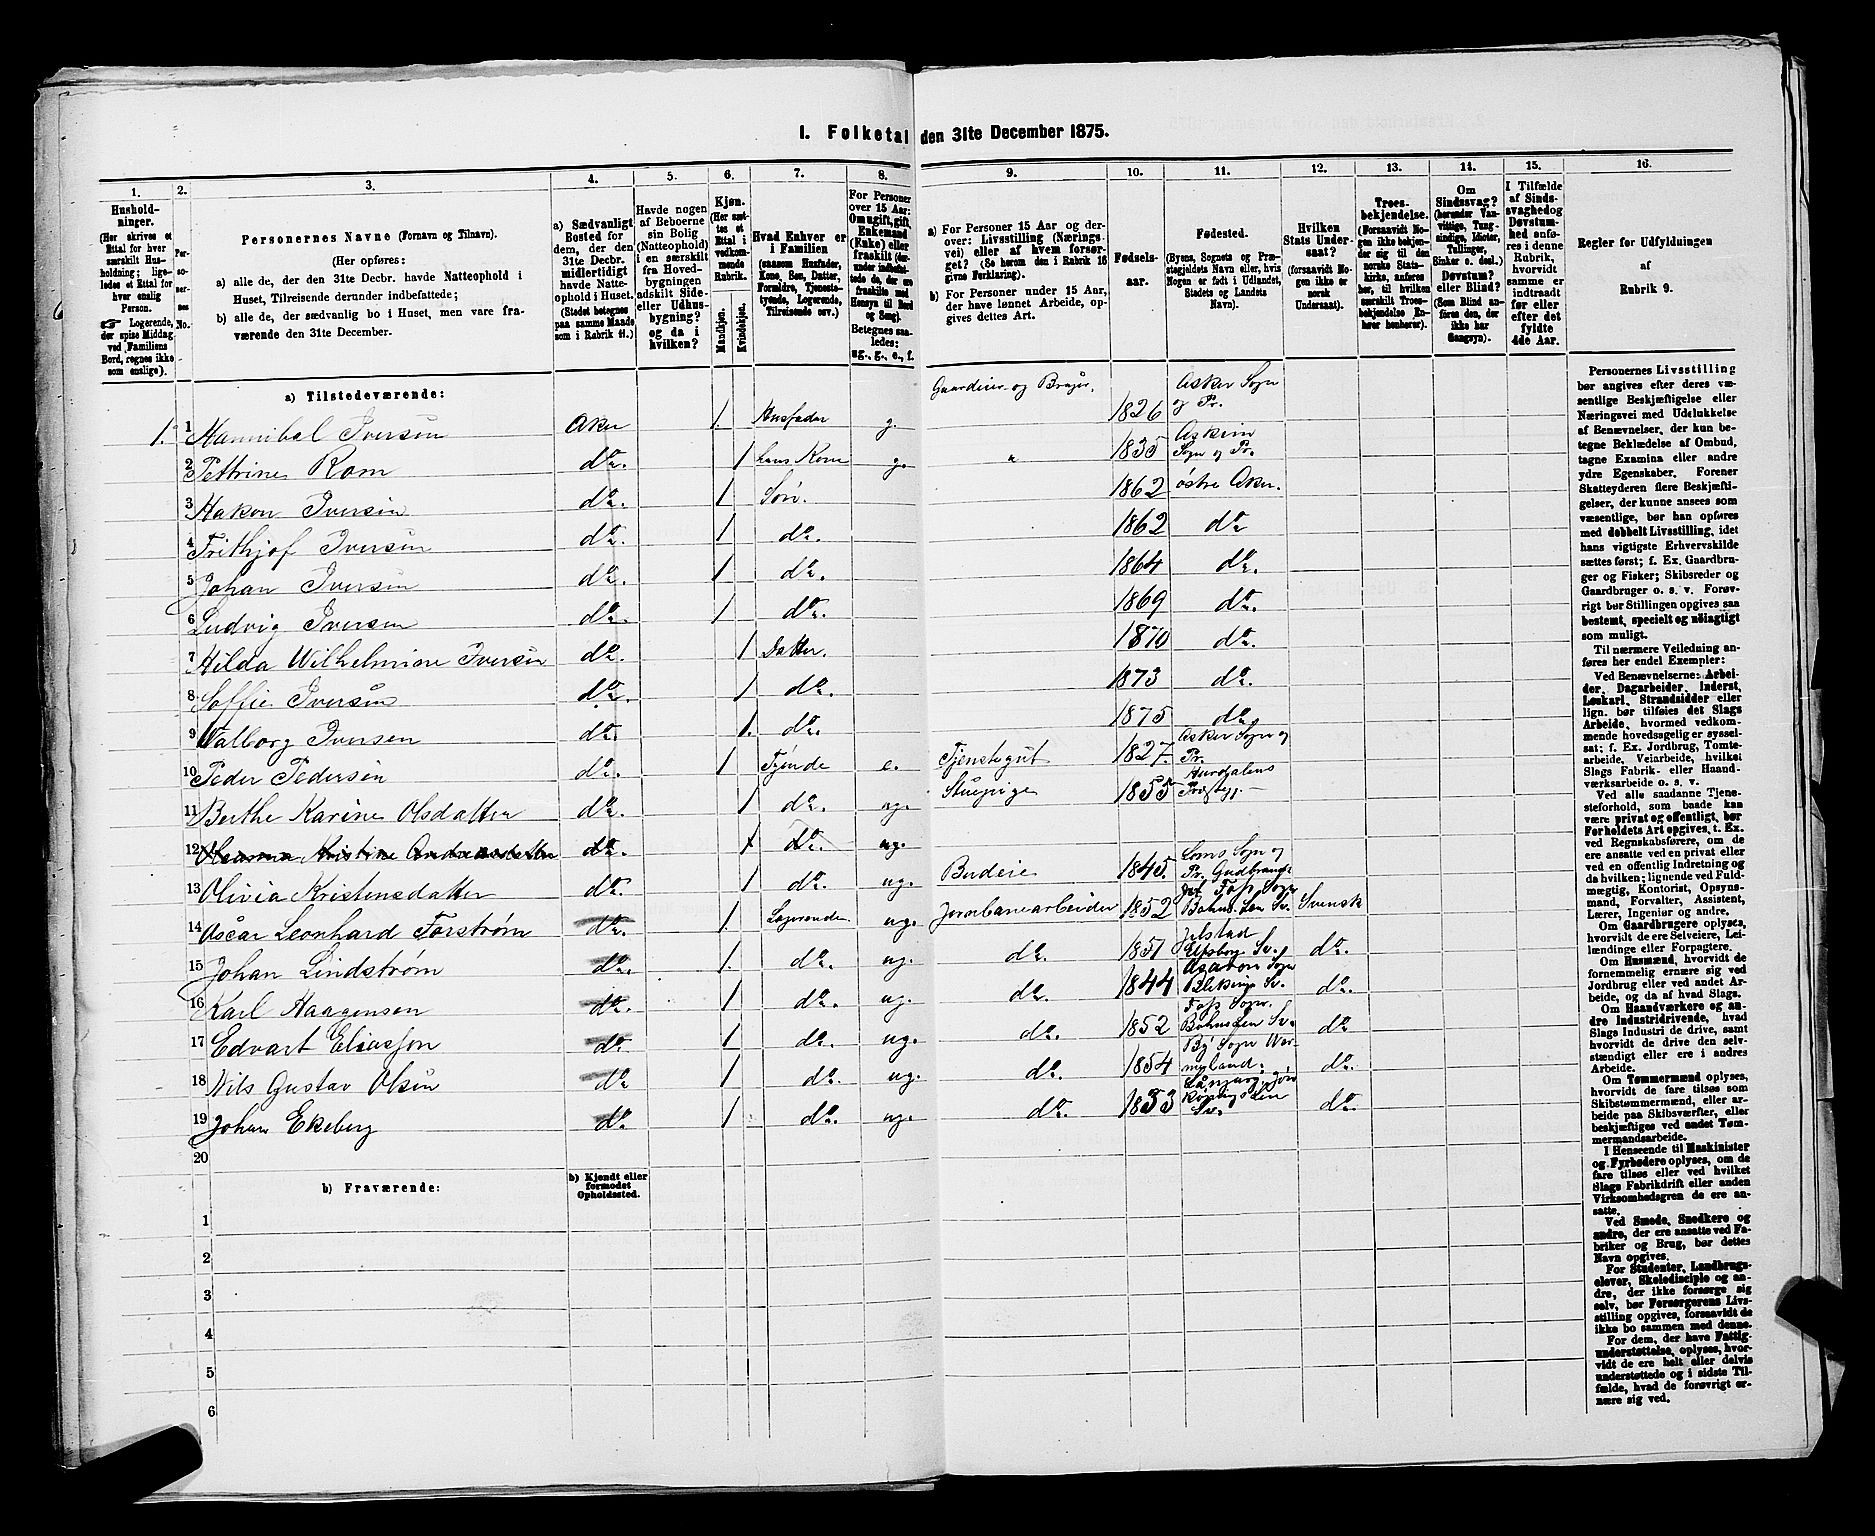 I. Folketal den 31te December 1875.
1. 2. 3. 4. 5. 6. 7. 8. 9. 10. 11. 12. 13. 14. 15. 16.
Hushold-
ninger.
(Her skrives et
Ettal for hver
særskilt Hus-
holdning; lige-
ledes et Ettal for
hver enslig
Person.
☞ Logerende,
der spise Middag
ved Familiens
Bord, regnes ikke
som enslige).
Per-
so-
ner-
nes
No.
Personernes Navne (Fornavn og Tilnavn).
(Her opføres:
a) alle de, der den 31te Decbr. havde Natteophold i
Huset, Tilreisende derunder indbefattede;
b) alle de, der sædvanlig bo i Huset, men vare fra-
værende den 31te December.
a) Sædvanligt
Bosted for
dem, der den
31te Decbr.
midlertidigt
havde Natte-
ophold i Huset.
(Stedet betegnes
paa samme Maade
som i Rubrik 11.)
Havde nogen
af Beboerne
sin Bolig
(Natteophold)
i en særskilt
fra Hoved-
bygningen
adskilt Side-
eller Udhus-
bygning?
og da i
hvilken?
Kjøn.
(Her sæt-
tes et
Ettal i
vedkom-
mende
Rubrik.
Mandkjøn.
Kvindekjøn.
Hvad Enhver er
i Familien
(saasom Husfader,
Kone, Søn, Datter,
Forældre, Tjeneste-
tyende, Logerende,
Tilreisende osv.)
For Personer
over 15 Aar:
Om ugift, gift,
Enkemand
(Enke) eller
fraskilt
Betegnes saa-
ledes:
ug., g., e., f.
a) For Personer 15 Aar og der-
over: Livsstilling (Nærings-
vei) eller af hvem forsør-
get? (Se herom den i Rubrik 16
givne Forklaring).
b) For Personer under 15 Aar,
der have lønnet Arbeide, op-
gives dettes Art.
Fødsels-
aar.
Fødested.
(Byens, Sognets og Præ-
stegjeldets Navn eller, hvis
Nogen er født i Udlandet,
Stedets og Landets
Navn).
Hvilken
Stats Under-
saat?
(forsaavidt No-
gen ikke er
norsk
Undersaat).
Troes-
bekjendelse.
(Forsaavidt No-
gen ikke bekjen-
der sig til den
norske Stats-
kirke, anføres
her, til hvilken
særskilt Troes-
bekjendelse En-
hver henhører).
Om
Sindssvag?
(herunder Van-
vittige, Tung-
sindige, Idioter,
Tullinger,
Sinker o. desl.)
Døvstum?
eller Blind?
(Som Blind an-
føres den, der
ikke har
Gangsyn).
I Tilfælde
af Sinds-
svaghed og
Døvstum-
hed anfø-
res i denne
Rubrik,
hvorvidt
samme er
indtraadt
før eller
efter det
fyldte
4de Aar.
Regler for Udfyldningen
af
Rubrik 9.
a) Tilstedeværende:
1. 1 Hannibal Iversen Aker 1. Husfader g. Gaardeier og Bruger. 1826 Asker Sogn og Pr.
2 Pettrine Rom do. 1 hans Kone g. " 1835 Askim Sogn og Pr.
3 Hakon Iversen do. 1 Søn. 1862 østre Aker.
4 Frithjof Iversen do. 1 do. 1862 do
5 Johan Iversen do. 1 do. 1864 do.
6 Ludvig Iversen do. 1 do. 1869 do.
7 Hilda Wilhelmine Iversen do. 1 Datter. 1870 do.
8 Soffie Iversen do. 1 do. 1873 do.
9 Valborg Iversen do. 1. do. 1875 do
10 Peder Pedersen do. 1 Tjende e. Tjenstegut 1827. Asker Sogn og Pr.
11 Berthe Karine Olsdatter do. 1 do. ug. Stuepige 1855 Hurdalens Præstegj.
12 Kristine Andreasdatter do. 1 do. ug.
13 Olivia Kristensdatter do. 1 do. ug. Budeie 1845. Loms Sogn og Pr. Gudbrands
14 Oscar Leonhard Forstrøm do. 1. Logerende ug. Jernbanearbeider 1852 Foss Sogn Bohus Len Sv. Svensk
15 Johan Lindstrøm do. 1. do. ug. do. 1851 Elfsborg Sv. do.
16 Karl Haagensen do. 1 do. ug. do. 1844 Sogn Bleking Sv. do.
17 Edvart Eliasson do 1 do. ug. do. 1852 Foss Sogn. Bohuslen Sv. do
18 Nils Gustav Olsen do 1 do. ug. do. 1854 By Sogn Wermeland. do.
19 Johan Ekeberg do 1 do. ug. do. 1833 Sv. do.
20
b) Fraværende:
b) Kjendt eller
formodet
Opholdssted.
1
2
3
4
5
6
Personernes Livsstilling
bør angives efter deres væ-
sentlige Beskjæftigelse eller
Næringsvei med Udelukkelse
af Benævnelser, der kun be-
tegne Beklædelse af Ombud,
tagne Examina eller andre
ydre Egenskaber. Forener
Skatteyderen flere Beskjæfti-
gelser, der kunne ansees som
væsentlige, bør han opføres
med dobbelt Livsstilling, idet
hans vigtigste Erhvervskilde
sættes først; f. Ex. Gaardbru-
ger og Fisker; Skibsreder og
Gaardbruger o. s. v. Forøv-
rigt bør Stillingen opgives saa
bestemt, specielt og nøiagtigt
som muligt.
Til nærmere Veiledning an-
føres her endel Exempler:
Ved Benævnelserne: Arbei-
der, Dagarbeider, Inderst,
Løskarl, Strandsidder eller
lign. bør tilføies det Slags
Arbeide, hvormed vedkom-
mende hovedsagelig er syssel-
sat; f. Ex. Jordbrug, Tomte-
arbeide, Veiarbeide, hvilket
Slags Fabrik- eller Haand-
værksarbeide o. s. v.
Ved alle saadanne Tjene-
steforhold, som baade kan
være privat og offentligt, bør
Forholdets Art opgives, t. Ex.
ved Regnskabsførere, om de
ere ansatte ved en privat eller
ved en offentlig Indretning og
da hvilken; lignende ved Fuld-
mægtig, Kontorist, Opsyns-
mand, Forvalter, Assistent,
Lærer, Ingeniør og andre.
Om Gaardbrugere oplyses,
hvorvidt de ere Selveiere, Lei-
lændinge eller Forpagtere.
Om Husmænd, hvorvidt de
fornemmelig ernære sig ved
Jordbrug eller ved andet Ar-
beide, og da af hvad Slags.
Om Haandværkere og an-
dre Industridrivende, hvad
Slags Industri de drive, samt
hvorvidt de drive den selv-
stændigt eller ere i andres
Arbeide.
Om Tømmermænd oplyses,
hvorvidt de fare tilsøs som
Skibstømmermænd, eller ar-
beide paa Skibsværfter, eller
beskjæftiges ved andet Tøm-
mermandsarbeide.
I Henseende til Maskinister
og Fyrbødere oplyses, om de
fare tilsøs eller ved hvilket
Slags Fabrikdrift eller anden
Virksomhedsgren de ere an-
satte.
Ved Smede, Snedkere og
andre, der ere ansatte ved Fa-
briker og Brug, bør dettes
Navn opgives.
For Studenter, Landbrugs-
elever, Skoledisciple og an-
dre, der ikke forsørge sig
selv, bør Forsørgerens Livs-
stilling opgives, forsaavidt de
ikke bo sammen med denne.
For dem, der have Fattig-
understøttelse, oplyses, hvor-
vidt de ere helt eller delvis
understøttede og i sidste Til-
fælde, hvad de forøvrigt er-
nære sig ved.